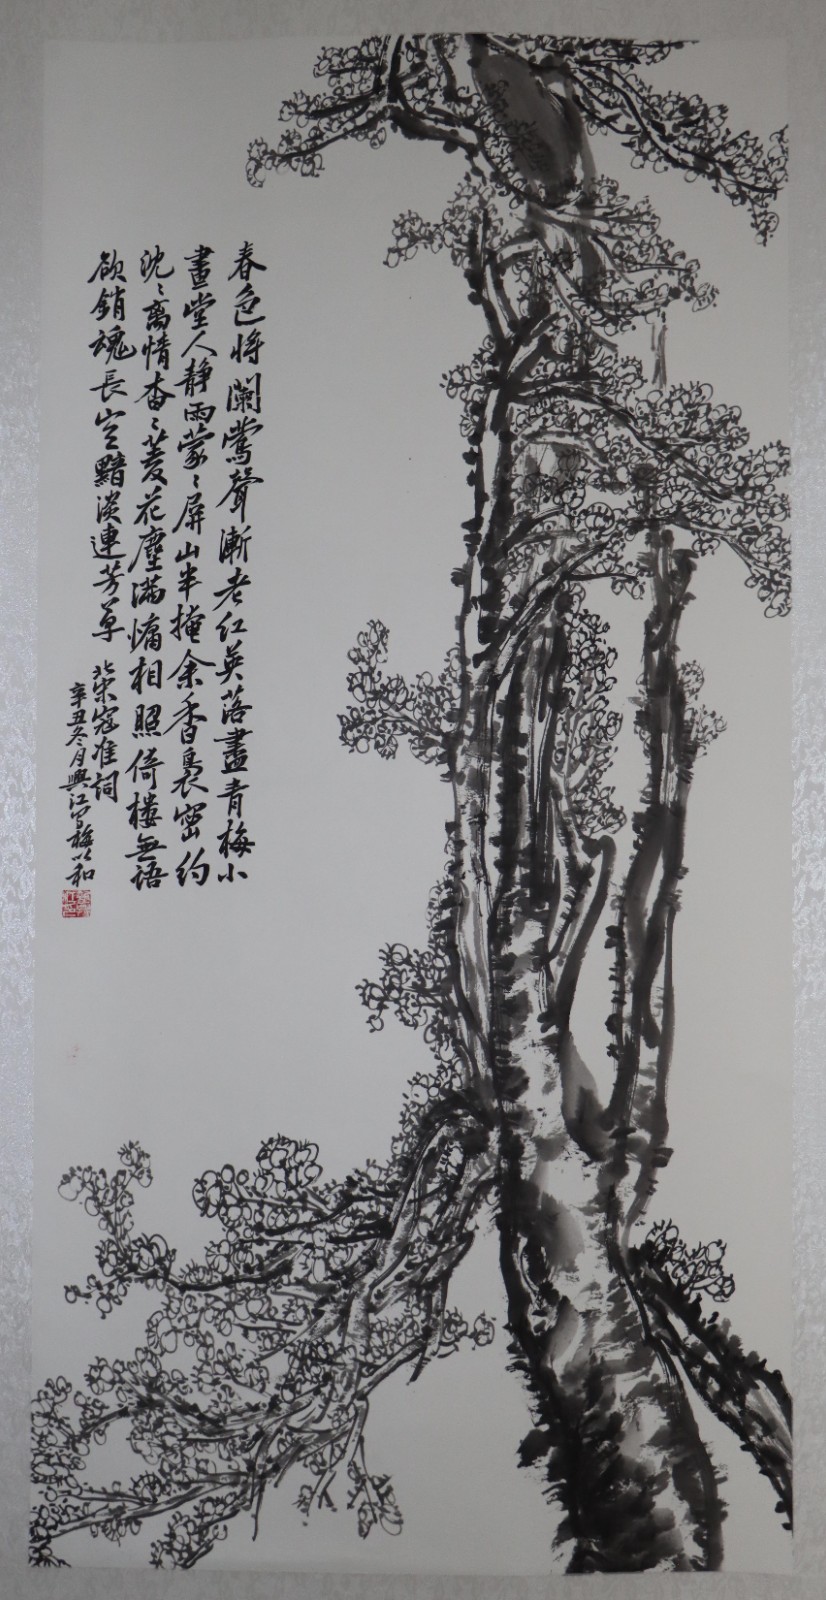 春色将闌鶯聲漸老红英落盡青梅小
畫堂人静雨蒙〻屏山半掩余香裊密约
沈〻离情杳〻菱花塵满慵相照倚樓無語
欲銷魂長空黯淡連芳草
北宋寇准詞
辛丑冬月興江写梅以和